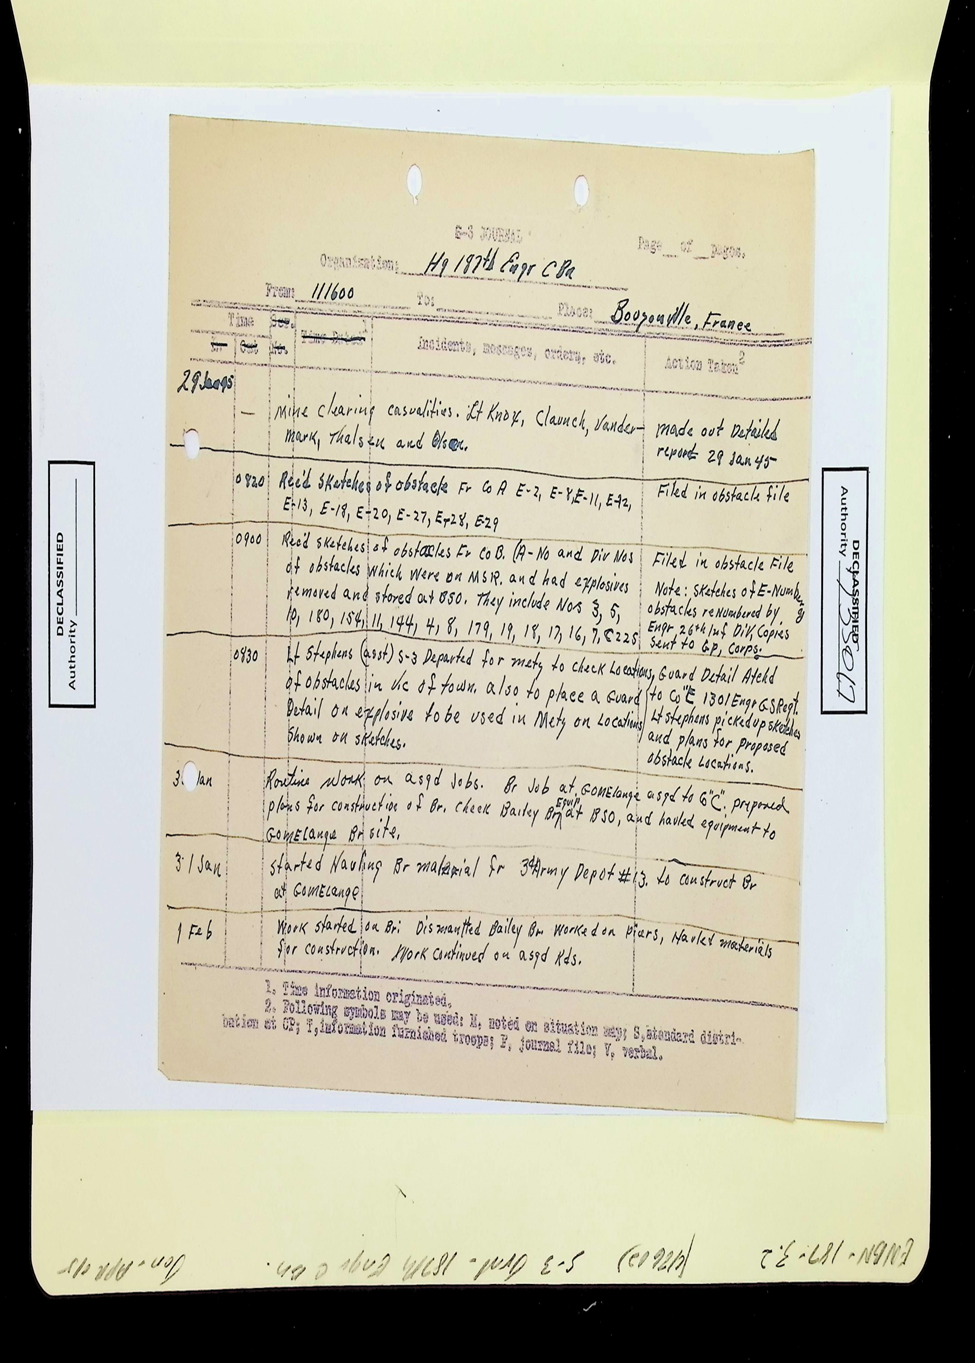 S-3 JOURNAL
Page__of__pages.
Organization: Hq 187th Engr C Bn
From: 111600 To: Place: Bouzonville, France
Time Ser. Time Dated Incidents, messages, orders, etc. Action Taken2
In Out No.
29 Jan 45
— Mine clearing casualities. Lt Knox, Claunch, Vander-
mark, Thalsen and Olson.
made out Detailed
report 29 Jan 45
0820 Rec'd sketches of obstacle Fr Co A E-2, E-8, E-11, E-12,
E-13, E-18, E-20, E-27, E-28, E-29
Filed in obstacle file
0900 Rec'd sketches of obstacles Fr Co B. (A-No and Div Nos
of obstacles which were on MSR. and had explosives
removed and stored at BSO. They include Nos 3, 5,
10, 180, 154, 11, 144, 4, 8, 179, 19, 18, 17, 16, 7, & 225
Filed in obstacle File
Note: sketches of E-Number
obstacles reNumbered by
Engr 26th Inf Div. Copies
sent to GP, Corps.
0930 Lt Stephens (asst) S-3 Departed for metz to check Locations
of obstacles in vic of town. also to place a Guard
Detail on explosive to be used in Metz on Locations
shown on sketches.
Guard Detail Atchd
to Co "E" 1301 Engr GS Regt.
Lt Stephens picked up sketches
and plans for proposed
obstacle Locations.
3 Jan Routine Work on asgd Jobs. Br Job at GOMELange asgd to "C". prepared
plans for construction of Br. check Bailey Br Equip at BSO, and hauled equipment to
GOMELange Br site.
31 Jan Started Hauling Br material fr 3d Army Depot #13. to construct Br
at GOMELange
1 Feb Work started on Br: Dismantled Bailey Br. Worked on piers, Hauled materials
for construction. Work continued on asgd Rds.
1. Time information originated.
2. Following symbols may be used: M, noted on situation map; S, standard distri-
bution at CP; T, information furnished troops; F, journal file; V, verbal.
DECLASSIFIED
Authority
DECLASSIFIED
Authority
ENBN-187-3.2 (42602) S-3 Jrnl - 187th Engr C Bn. Jan-Apr 45